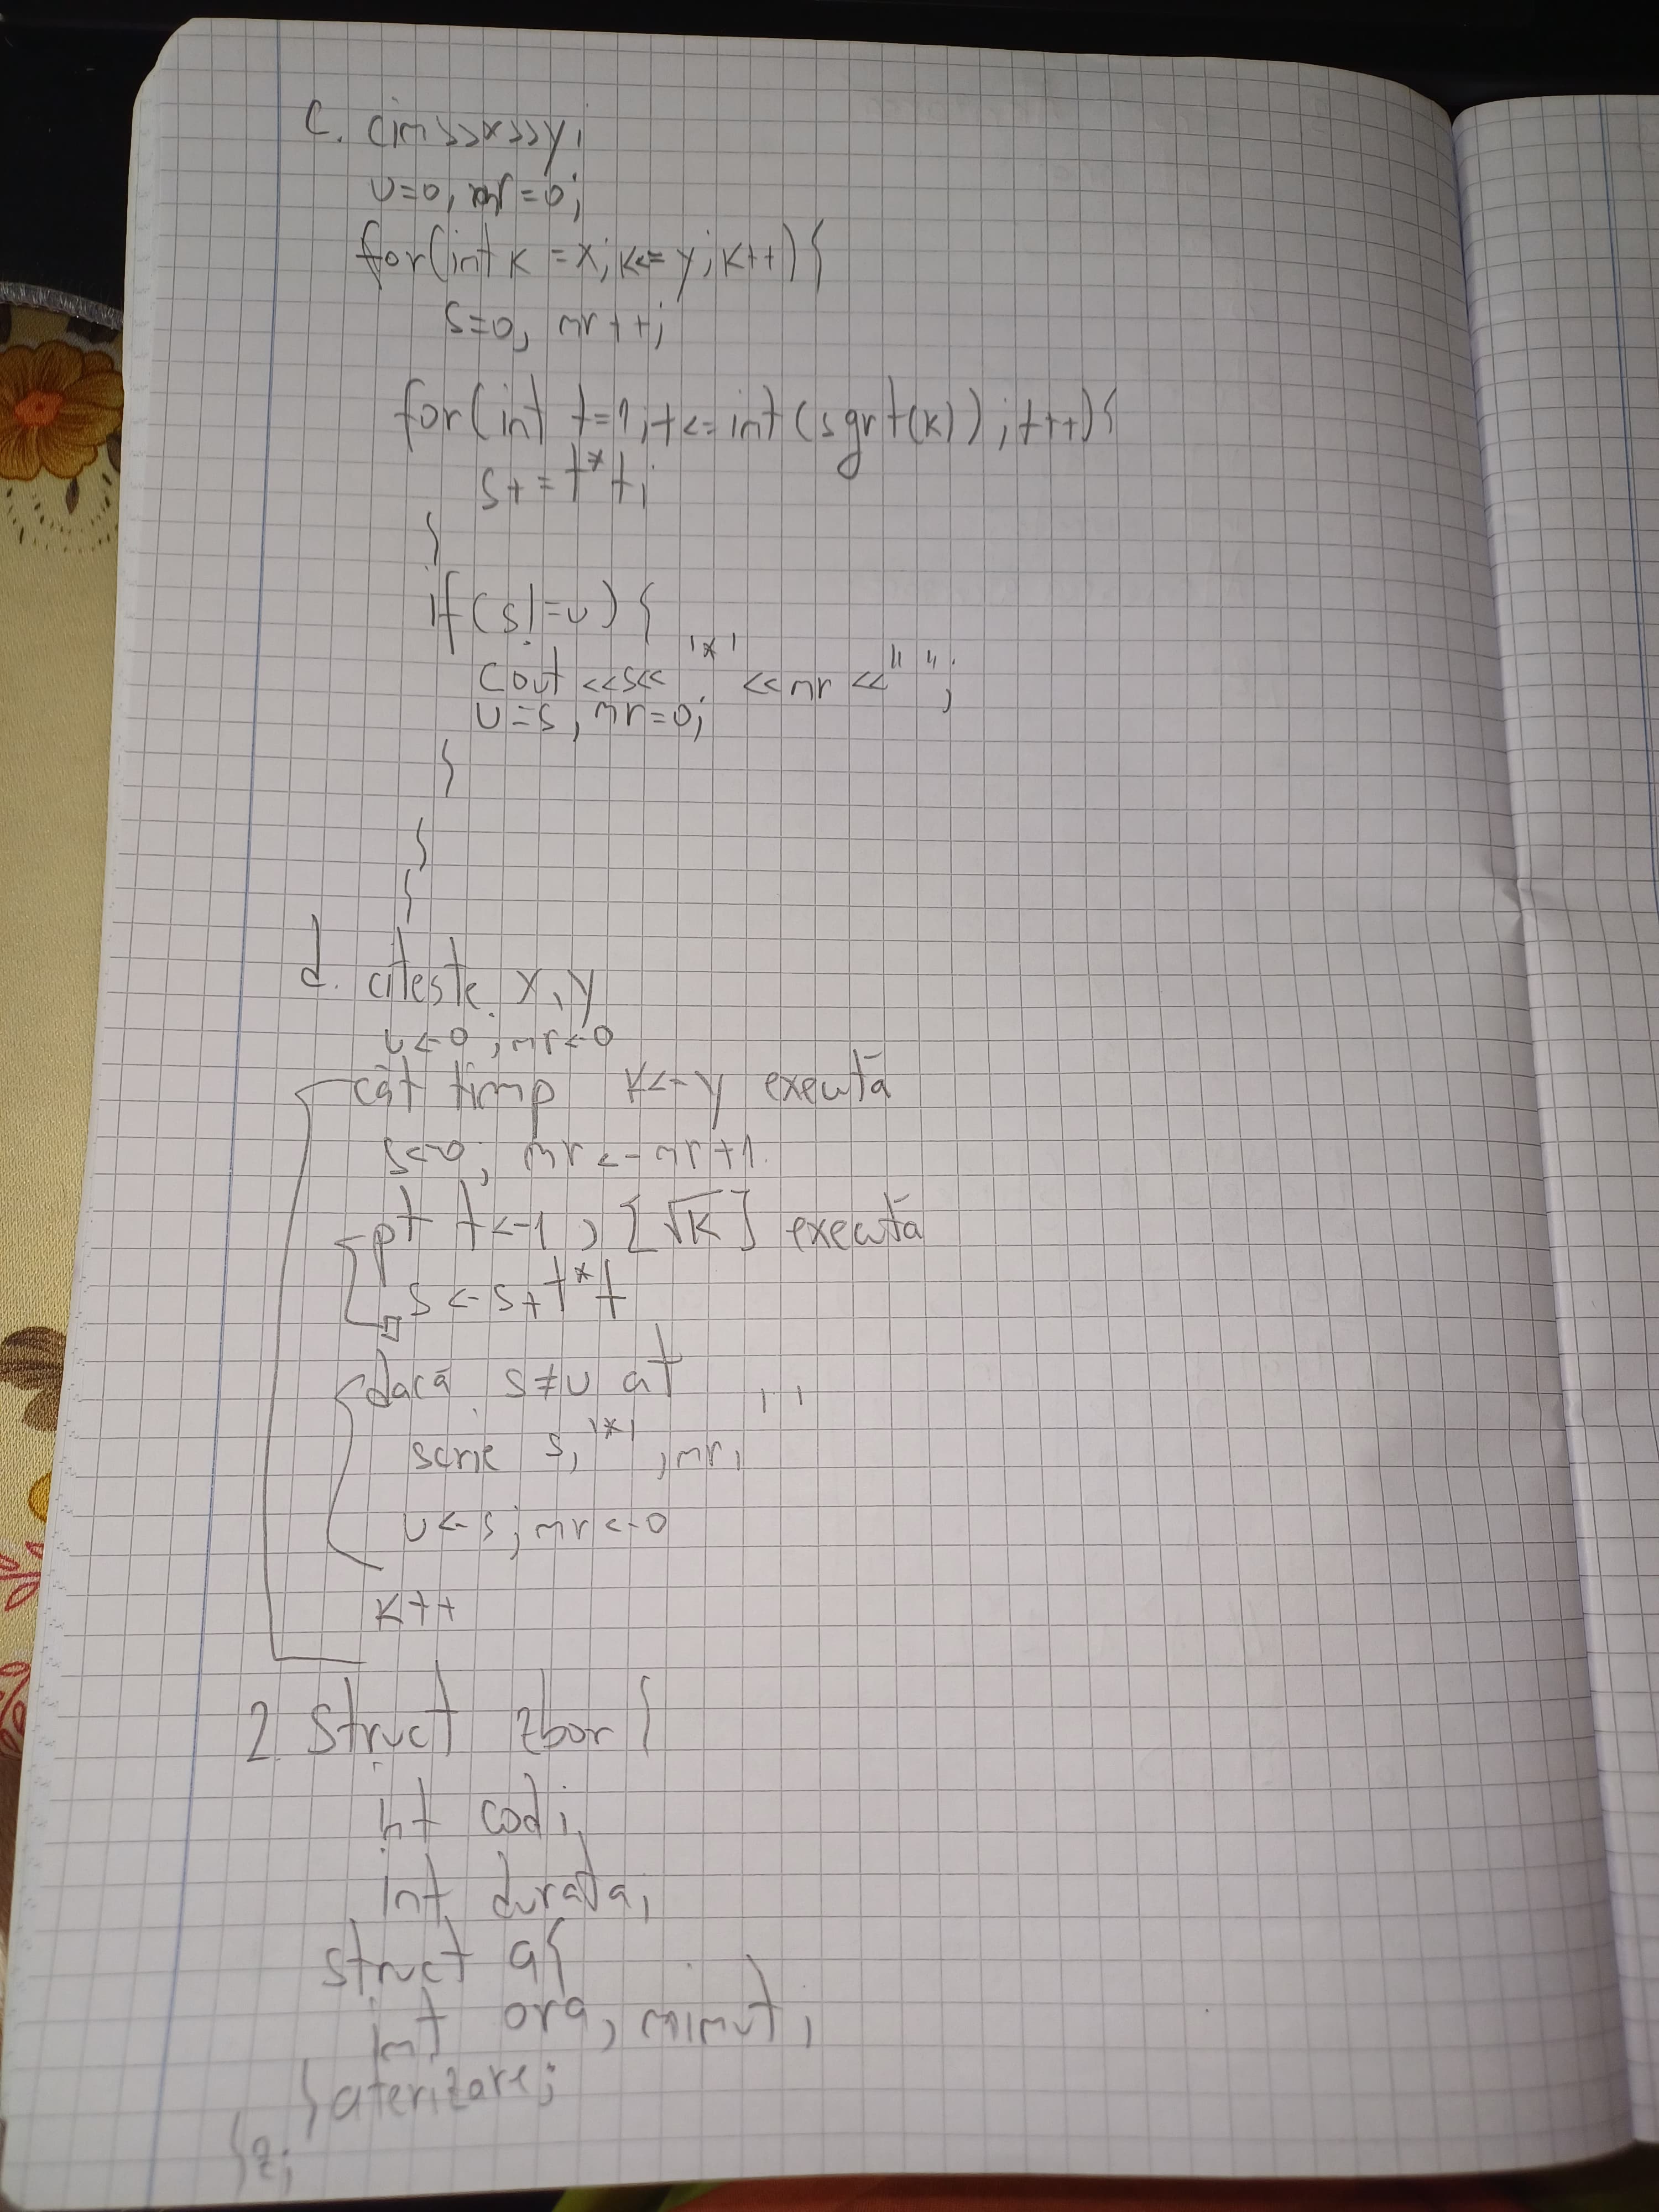 c. cin>>x>>y;
u=0, nr=0;
for(int k=x; k<=y; k++){
s=0, nr++;
for(int t=1; t<=int(sqrt(k)); t++){
s+=t*t;
}
if(s!=u){
cout<<s<<'*'<<nr<<" ";
u=s, nr=0;
}
}
}
d. citeste x, y
u<-0; nr<-0
cât timp k<-y execută
s<-0; nr<-nr+1
pt t<-1, [√k] execută
s<-s+t*t
dacă s≠u at
scrie s, '*', nr, ' '
u<-s; nr<-0
k++
2. struct zbor{
int cod;
int durata;
struct a{
int ora, minut;
}aterizare;
}z;